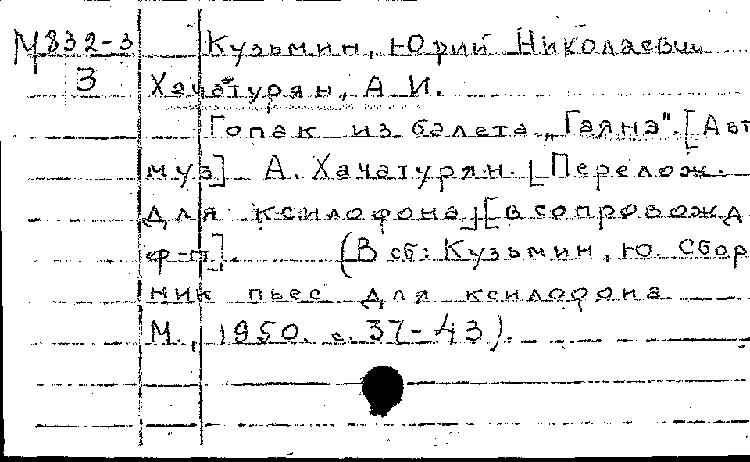 М832-3 Кузьмин, Юрий Николаевич
3 Хачатурян, А. И.
Гопак из балета „Гаянэ". [Авт
муз] А. Хачатурян. [Перелож.
для ксилофона] [в сопровожд
ф-п]. (В сб: Кузьмин, Ю. Сбор
ник пьес для ксилофона
М., 1950. с. 37-43).